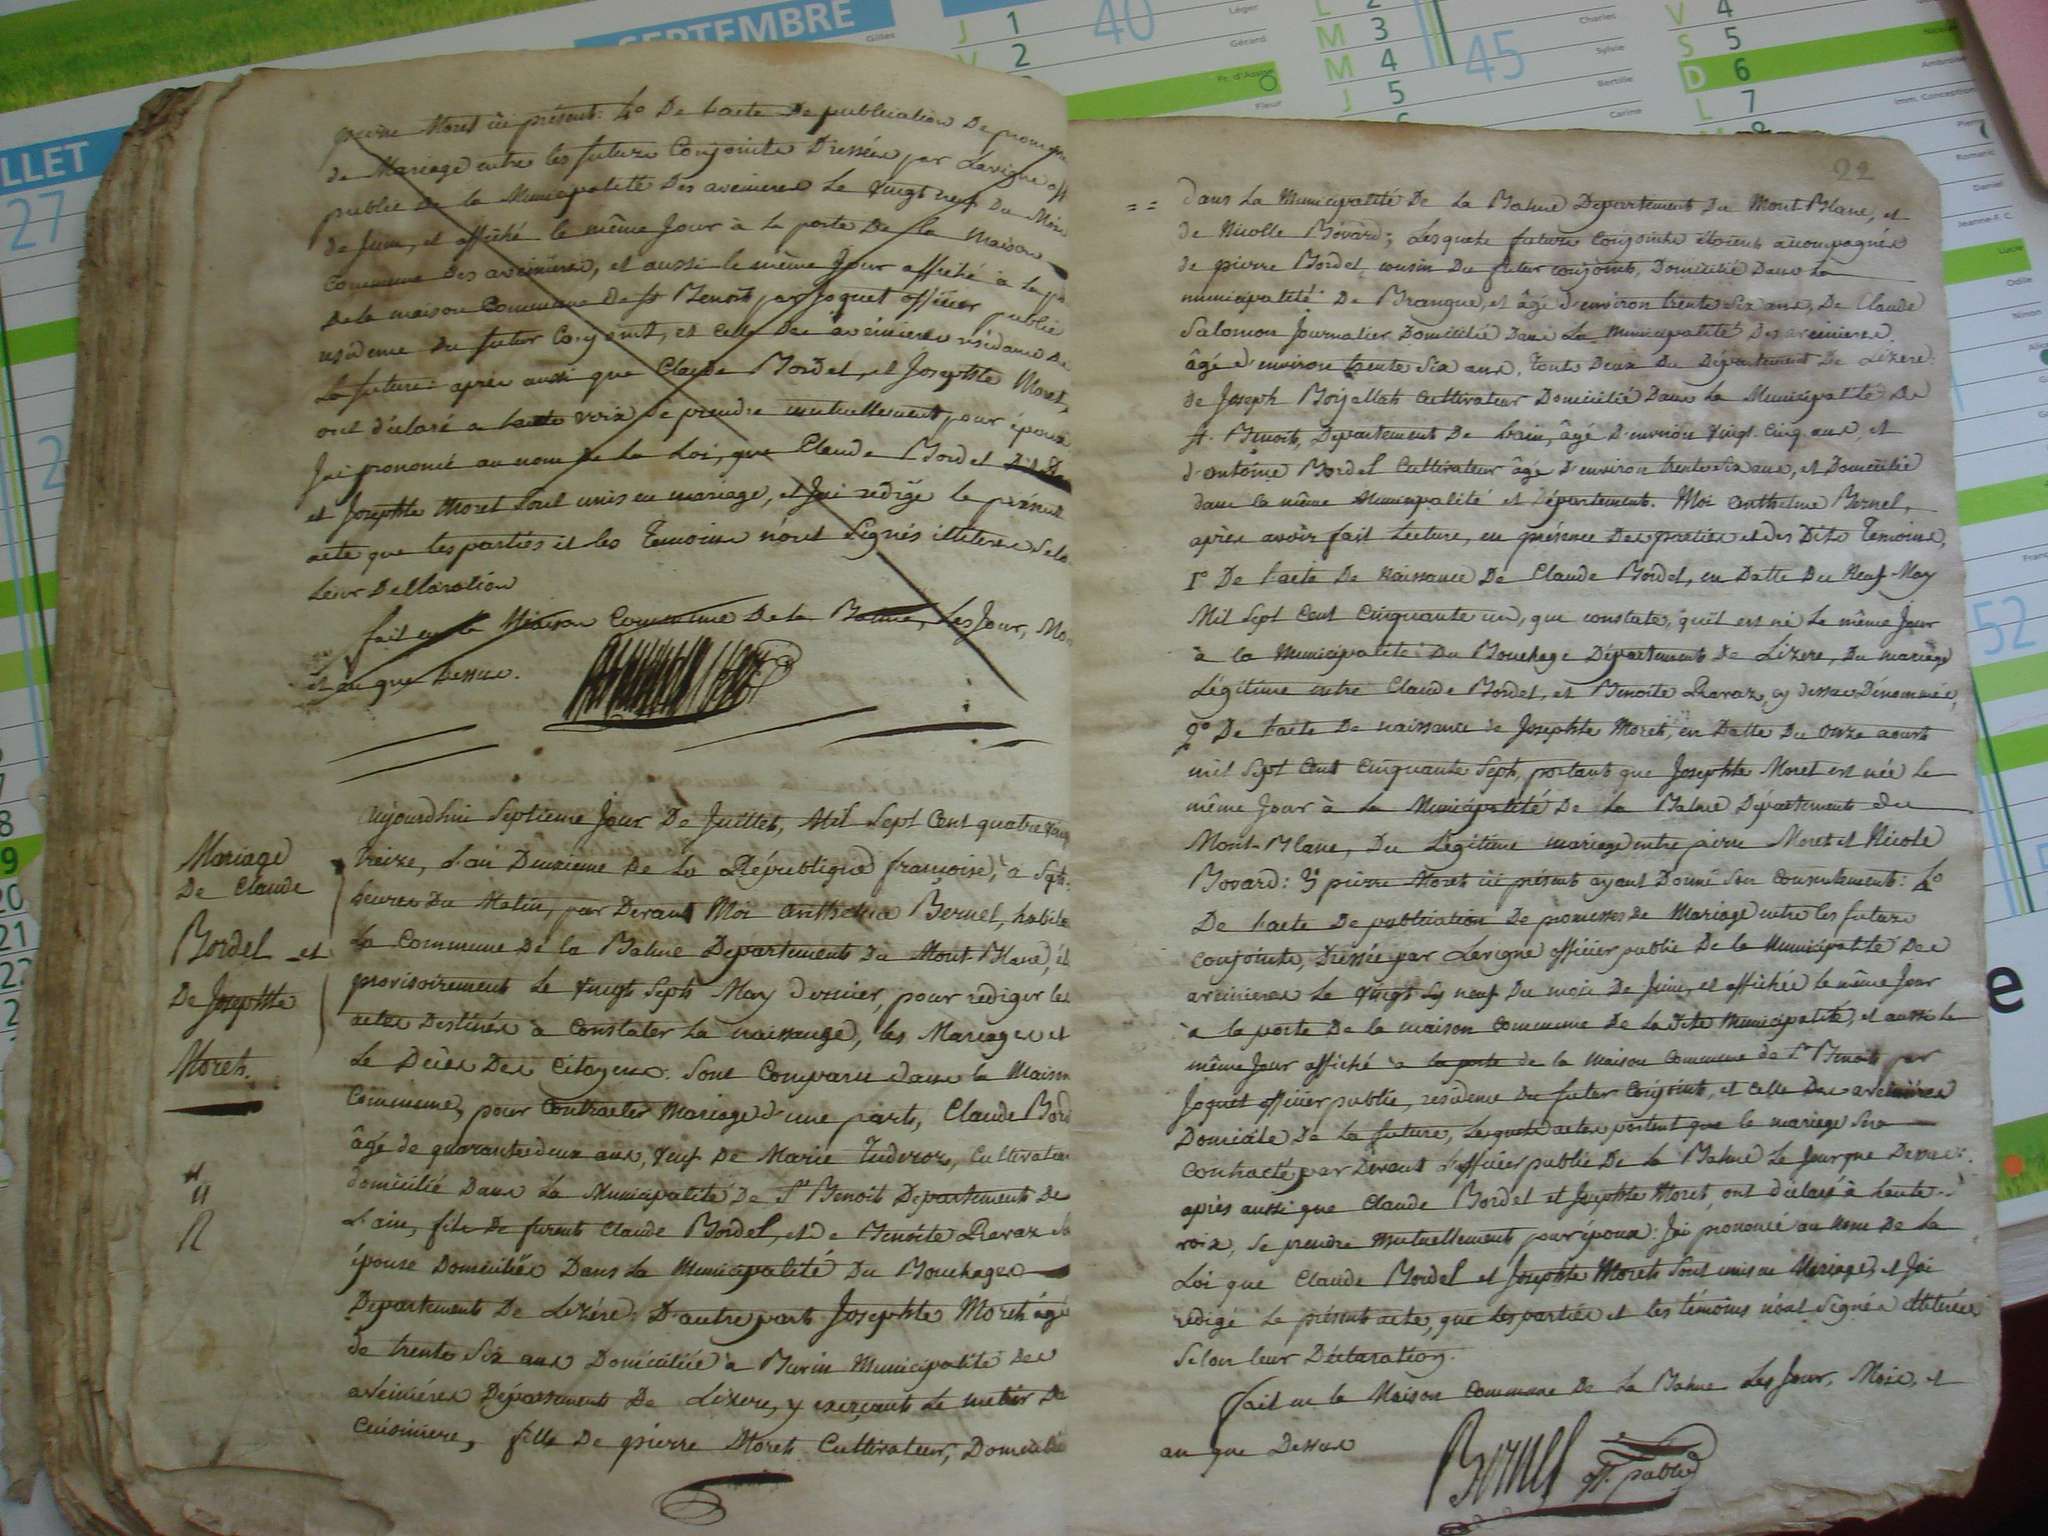 pierre Moret ici présent: 4.o De Lacte De publication De promesse
de Mariage entre les futurs Conjoints Dressée par Lavigne off
public De la Municipalité Des aveinieres Le vingt neuf Du Mois
de Juin, et affiché le même Jour à la porte De la Maison
Commune Des aveinieres, et aussi le même Jour affiché à la
De la maison Commune De St Benoit par Joguet officier public
residence Du futur Conjoint, et celle Des aveinieres résidance De
La future: après aussi que Claude Bordel, et Josephte Moret,
ont déclaré a haute voix Se prendre mutuellement pour époux
Jai prononcé au nom De La Loi, que Claude Bordel
et Josephte Moret sont unis en mariage, et Jai redigé le present
acte que les parties et les Temoins n'ont Signés illiteres Selo
Leur Déclaration
fait en la Maison Commune De la Balme, Les Jour, Mois
et an que Dessus.
Mariage
De Claude
Bordel et
De Josephte
Moret.
Aujourdhui Septieme Jour De Juillet, Mil Sept Cent quatre vingt
treize, L'an Deuxieme De La République françoise, à Sept
heures Du Matin, par Devant Moi Anthelme Bernel, habita
La Commune De la Balme Departement Du Mont Blanc, él
provisoirement Le vingt Sept May dernier, pour rédiger les
actes Destinés à Constater La naissance, les Mariages et
Le Décès Des Citoyens. Sont Comparus dans la Maison
Commune, pour Contracter Mariage d'une part, Claude Bord
âgé de quarante deux ans, veuf De Marie Tuderoz, Cultivateur
domicilié Dans La Municipalité De St Benoit Departement De
L'ain, fils De furent Claude Bordel, et De Benoite Ravaz Sa
épouse Domiciliés Dans La Municipalité Du Bouchage
Departement De Lizére; D'autre part Josephte Moret âgé
de trente Six ans Domiciliée à Buvin Municipalité Des
aveinieres Département De Lizere, y exerçant Le metier De
Cuisiniere, fille De pierre Moret Cultivateur, Domicilié
22
= = dans La Municipalité De La Balme Departement Du Mont Blanc, et
de Nicolle Bovard; Lesquels futurs conjoints étoient acompagnés
de pierre Bordel, cousin Du futur conjoint, Domicilié Dans la
municipalité De Brangue, et âgé d'environ trente Six ans, De Claude
Salomon Journalier Domicilié Dans La Municipalité Des aveinieres,
âgé d'environ trente Six ans, touts Deux Du Département De Lizere:
de Joseph Boijallah Cultivateur Domicilié Dans La Municipalité De
St. Benoit, Departement De Lain, âgé d'environ vingt-Cinq ans, et
d'antoine Bordel Cultivateur âgé d'environ trente Six ans, et Domicilié
dans la même Municipalité et Département. Moi anthelme Bernel,
après avoir fait Lecture, en présence Des parties et des Dits Temoins,
1.o De Lacte De Naissance De Claude Bordel, en Datte Du Neuf May
Mil Sept Cent Cinquante un, que constate, qu'il est né Le même Jour
à la Municipalité Du Bouchage Département De Lizere, Du mariage
Légitime entre Claude Bordel, et Benoite Ravaz, cy dessus Dénommée,
2.o De Lacte De naissance de Josephte Moret, en Datte Du Onze aoust
mil Sept Cent Cinquante Sept, portant que Josephte Moret est née Le
même Jour à La Municipalité De La Balme Département du
Mont-Blanc, Du Légitime mariage entre pierre Moret et Nicole
Bovard: 3.o pierre Moret ici présent ayant Donné Son Consentement: 4.o
De Lacte De publication De promesses de Mariage entre les futurs
conjoints, Dressée par Lavigne officier public De la Municipalité Des
aveinieres Le vingt neuf Du mois De Juin, et affichée Le même Jour
à la porte De la maison commune De La Dite Municipalité, et aussi le
même Jour affiché à la porte de la maison commune de St Benoit par
Joguet officier public, residence Du futur Conjoint, et Celle Des aveinieres
Domicile De La future, Lesquels actes portent que le mariage Sera
contracté par Devant L'officier public De La Balme Le Jour que Dessus:
après aussi que Claude Bordel et Josephte Moret, ont déclaré à haute
voix, Se prendre Mutuellement pour époux: Jai prononcé au Nom De La
Loi que Claude Bordel et Josephte Moret Sont unis en Mariage, et Jai
redigé Le présent acte, que Les parties et les témoins n'ont Signés illiterés
Selon leur Déclaration.
Fait en la Maison Commune De La Balme Les Jour, Mois, et
an que Dessus
Bernel off. public
SEPTEMBRE
LLET
27
40
45
52